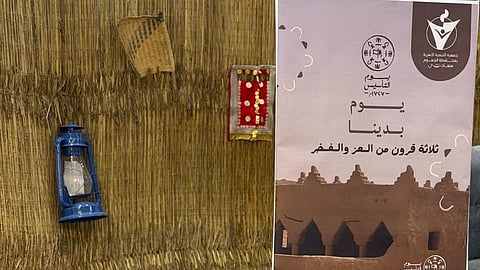 جمعية التنمية الأسرية
يوم
التأسيس
١٧٢٧م
يوم
بدينا
ثلاثة قرون من العز والفخر